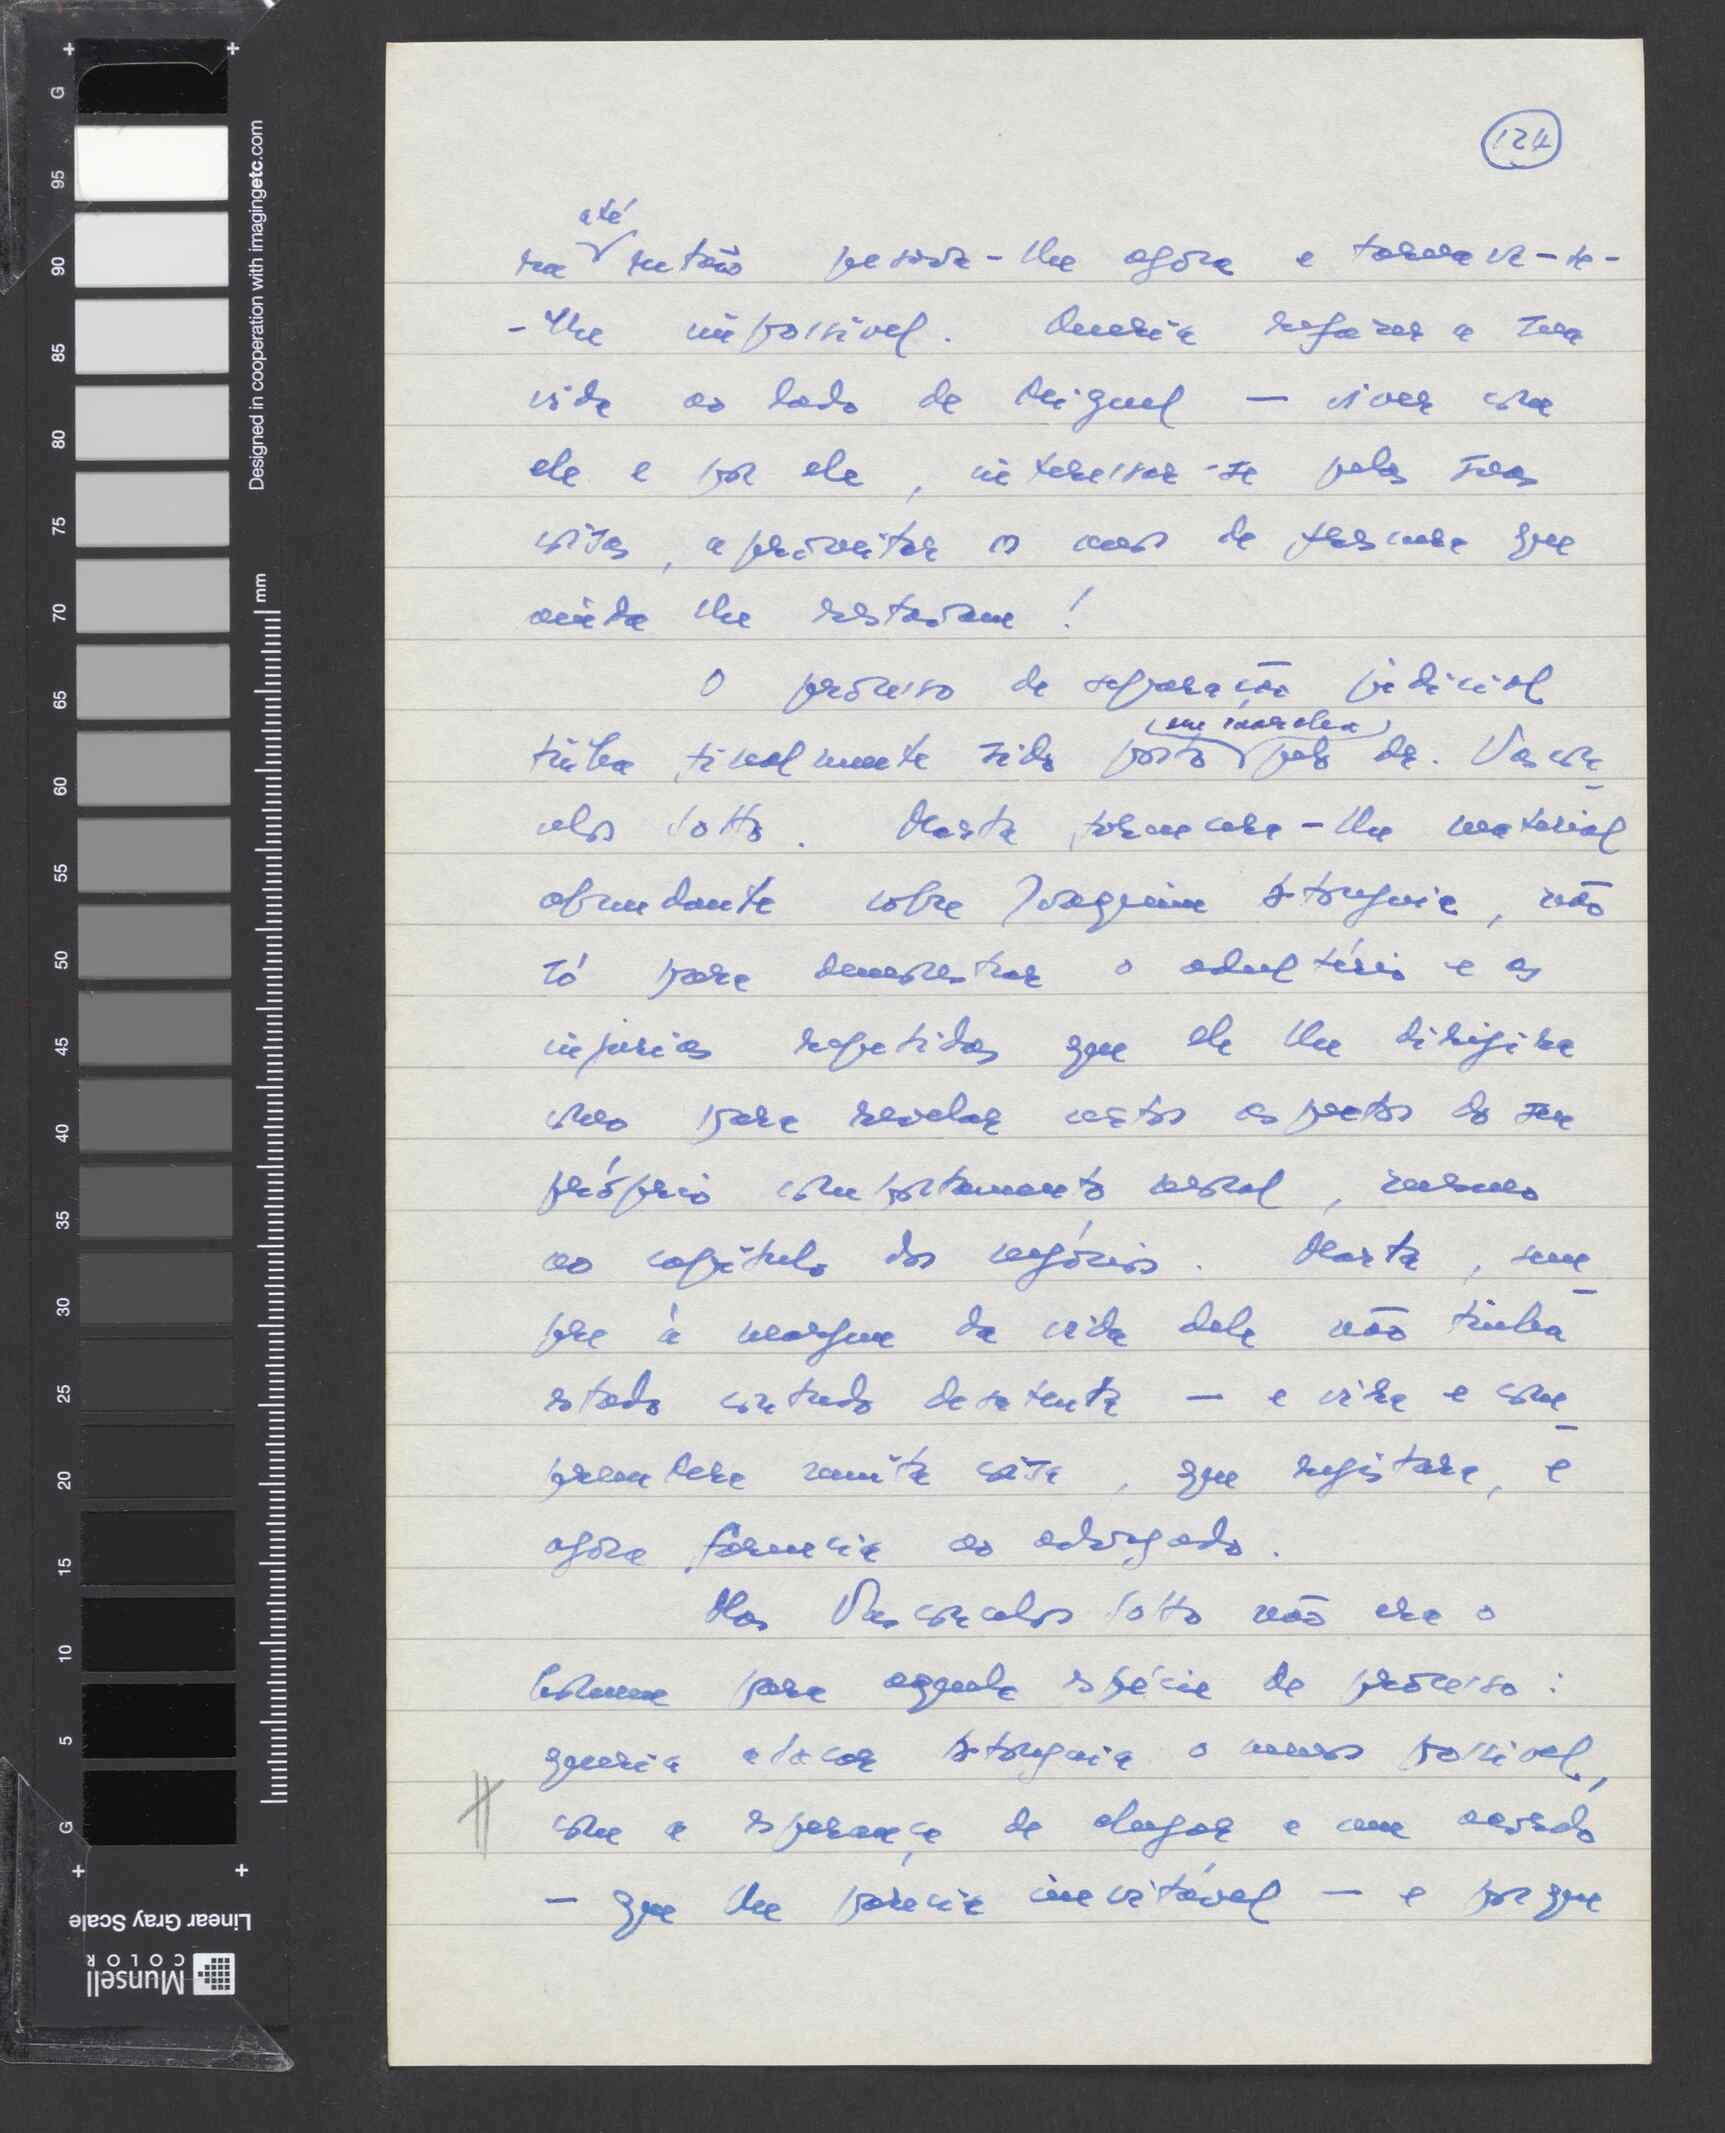 124
até
ra então pesava-lhe agora e tornava-se-
-lhe impossível. Queria refazer a sua
vida ao lado de Miguel — viver com
ele e por ele, interessar-se pelas suas
coisas, aproveitar os anos de frescura que
ainda lhe restavam!
O processo de separação judicial
(em marcha)
tinha finalmente sido posto pelo dr. Vascon-
celos Sotto. Marta fornecera-lhe material
abundante sobre Joaquim, não
só para demonstrar o adultério e as
injurias repetidas que ele lhe dirigira
como para revelar certos aspectos do seu
próprio comportamento moral, mesmo
ao capítulo dos negócios. Marta, sem-
pre à margem da vida dele não tinha
estado contudo desatenta — e vira e com-
preendera muita coisa, que registara, e
agora fornecia ao advogado.
Mas Vasconcelos Sotto não era o
homem para aquela espécie de processo:
queria atacar o menos possivel,
com a esperança de chegar a um acordo
— que lhe parecia inevitável — e porque
Designed in cooperation with imagingetc.com
mm
G
95
90
85
80
75
70
65
60
55
50
45
40
35
30
25
20
15
10
5
G
Linear Gray Scale
Munsell
COLOR